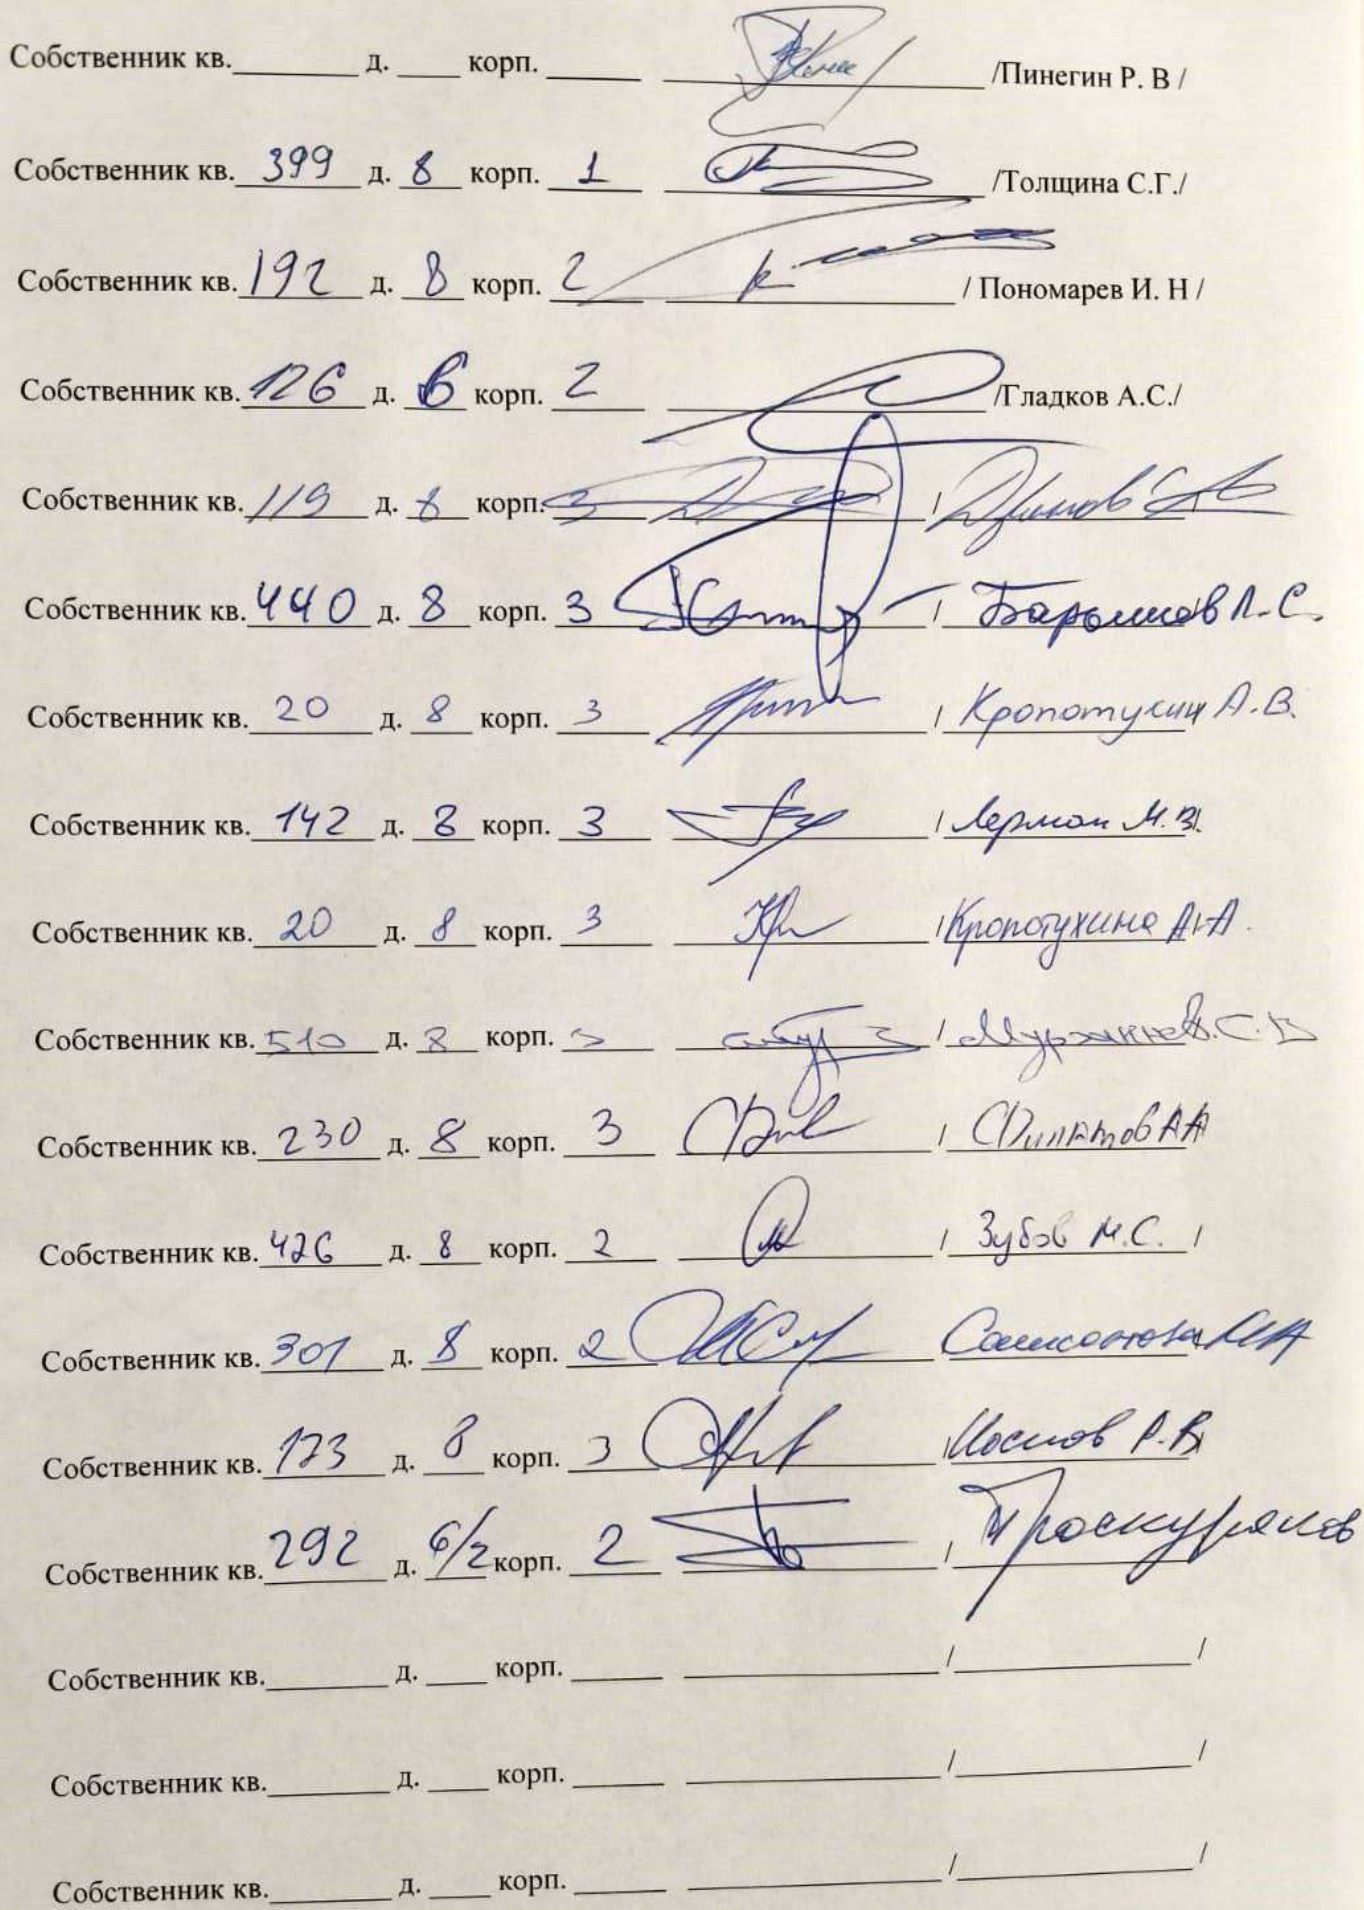 Собственник кв. ______ д. ___ корп. _____ /Пинегин Р. В /
Собственник кв. 399 д. 8 корп. 1 /Толщина С.Г./
Собственник кв. 192 д. 8 корп. 2 / Пономарев И. Н /
Собственник кв. 126 д. 8 корп. 2 /Гладков А.С./
Собственник кв. 119 д. 8 корп. 3 /
Собственник кв. 440 д. 8 корп. 3 /
Собственник кв. 20 д. 8 корп. 3 / Кропотухин А.В.
Собственник кв. 142 д. 8 корп. 3 / Лерман М.В.
Собственник кв. 20 д. 8 корп. 3 / Кропотухина А.А.
Собственник кв. 510 д. 8 корп. 3 /
Собственник кв. 230 д. 8 корп. 3 / Филатов АА
Собственник кв. 426 д. 8 корп. 2 / Зубов М.С. /
Собственник кв. 301 д. 8 корп. 2
Собственник кв. 173 д. 8 корп. 3 / Р.В.
Собственник кв. 292 д. 6/2 корп. 2 / Проскуряков
Собственник кв. ______ д. ___ корп. _____ / /
Собственник кв. ______ д. ___ корп. _____ / /
Собственник кв. ______ д. ___ корп. _____ / /